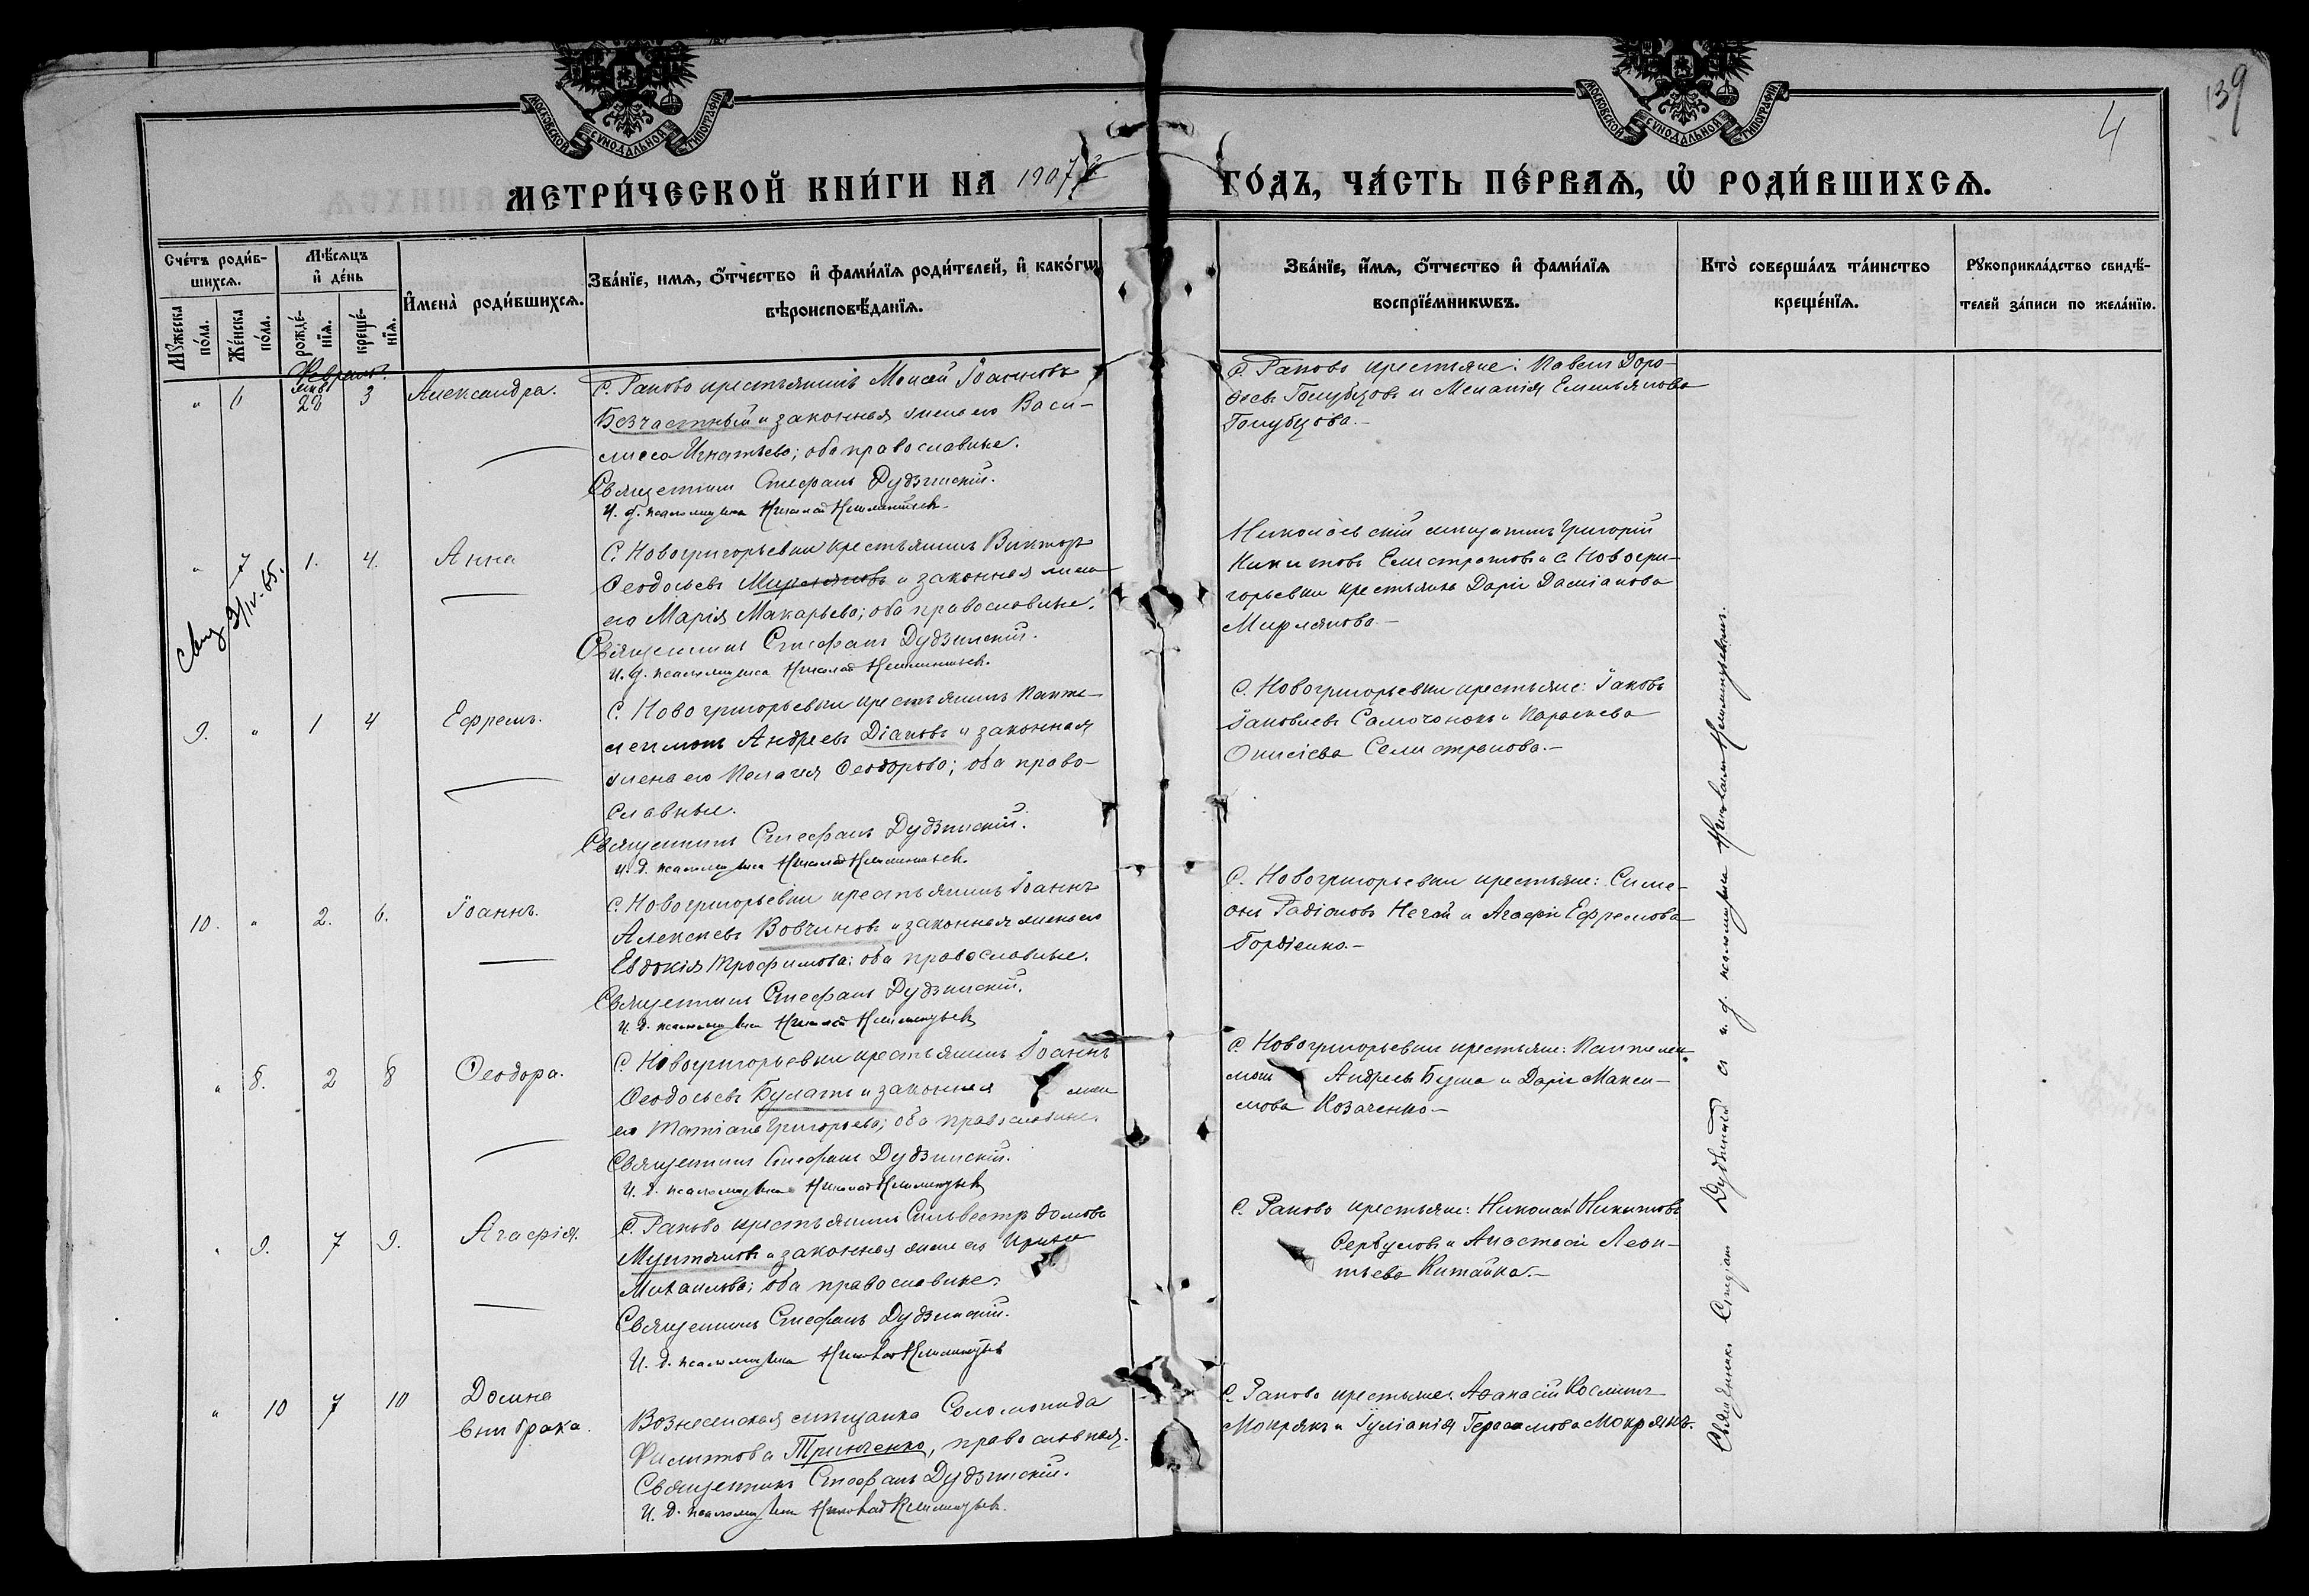 139
4
МОСКОВСКОЙ СѴНОДАЛЬНОЙ ТИПОГРАФІИ
МОСКОВСКОЙ СѴНОДАЛЬНОЙ ТИПОГРАФІИ
МЕТРИ́ЧЕСКОЙ КНИ́ГИ НА 1907 ГО́ДЪ, ЧА́СТЬ ПЕ́РВАѦ, Ѡ҆ РОДИ́ВШИХСѦ.
Сче́тъ роди́в-
шихсѧ.
Мꙋ́жеска по́ла.
Же́нска по́ла.
Мѣ́сѧцъ
и҆ де́нь
рожде́-нїѧ.
креще́-нїѧ.
И҆мена̀ роди́вшихсѧ.
Зва́нїе, имѧ, ѻ҆́тчество и҆ фами́лїѧ роди́телей, и҆ како́гѡ
вѣроисповѣ́данїѧ.
Зва́нїе, и҆́мѧ, ѻ҆́тчество и҆ фами́лїѧ
воспрїе́мникѡвъ.
Кто̀ соверша́лъ та́инство
креще́нїѧ.
Рꙋкоприкла́дство свидѣ́-
телей за́писи по жела́нїю.
Февраль.
" 6 янв. 28 3 Александра.
С. Раково крестьянинъ Моисей Іоанновъ
Безчастный и законная жена его Васи-
лисса Игнатьева; оба православные.
Священникъ Стефанъ Дудзинскій.
И. д. псаломщика Николай
С. Раково крестьяне: Павелъ Доро-
феевъ Голубцовъ и Меланія Емельянова
Голубцова.-
" 7 1. 4. Анна
3/IV-65.
С. Новогригорьевки крестьянинъ Викторъ
Ѳеодосьевъ Мирляновъ и законная жена
его Марія Макарьева; оба православные.
Священникъ Стефанъ Дудзинскій.
И. д. псаломщика Николай
Николаевскій мещанинъ Григорій
Никитовъ Елистратовъ и с. Новогри-
горьевки крестьянка Дарія Даміанова
Мирлянова-
9. " 1 4 Ефремъ.
С. Новогригорьевки крестьянинъ Панте-
леимонъ Андреевъ Діановъ и законная
жена его Пелагея Ѳеодорова; оба право-
славные.
Священникъ Стефанъ Дудзинскій.
И. д. псаломщика Николай
С. Новогригорьевки крестьяне: Іаковъ
Іаковлевъ Самочонокъ и Параскева
Онисіева Селистранова.-
10. " 2. 6. Іоаннъ.
С. Новогригорьевки крестьянинъ Іоаннъ
Алексеевъ Вовчиновъ и законная жена его
Евдокія Трофимова: оба православные.
Священникъ Стефанъ Дудзинскій.
И. д. псаломщика Николай
С. Новогригорьевки крестьяне: Симе-
онъ Радіоновъ Негай и Агафія Ефремова
Гордіенко.-
" 8. 2 8 Ѳеодора.
С. Новогригорьевки крестьянинъ Іоаннъ
Ѳеодосьевъ Булатъ и законная жена
его Татіана Григорьева; оба православные.
Священникъ Стефанъ Дудзинскій.
И. д. псаломщика Николай
С. Новогригорьевки крестьяне: Пантелеи-
монъ Андреевъ Буша и Дарія Макси-
мова Козаченко-
" 9. 7 9. Агафія.
С. Раково крестьянинъ Сильвестръ Ѳомовъ
Мунтяновъ и законная жена его Ирина
Михаилова; оба православные.
Священникъ Стефанъ Дудзинскій.
И. д. псаломщика Николай
С. Раково крестьяне: Николай Никитовъ
Сербуловъ и Анастасія Леон-
тьева Китайка.-
" 10 7 10 Домна
внѣ брака.
Вознесенская мѣщанка Соломонида
Филиппова Тринченко, православная.
Священникъ Стефанъ Дудзинскій.
И. д. псаломщика Николай
С. Раково крестьяне: Аѳанасій Косминъ
Мокрякъ и Іуліанія Герасимова Мокрякъ.
Священникъ Стефанъ Дудзинскій съ и. д. псаломщика Николаемъ